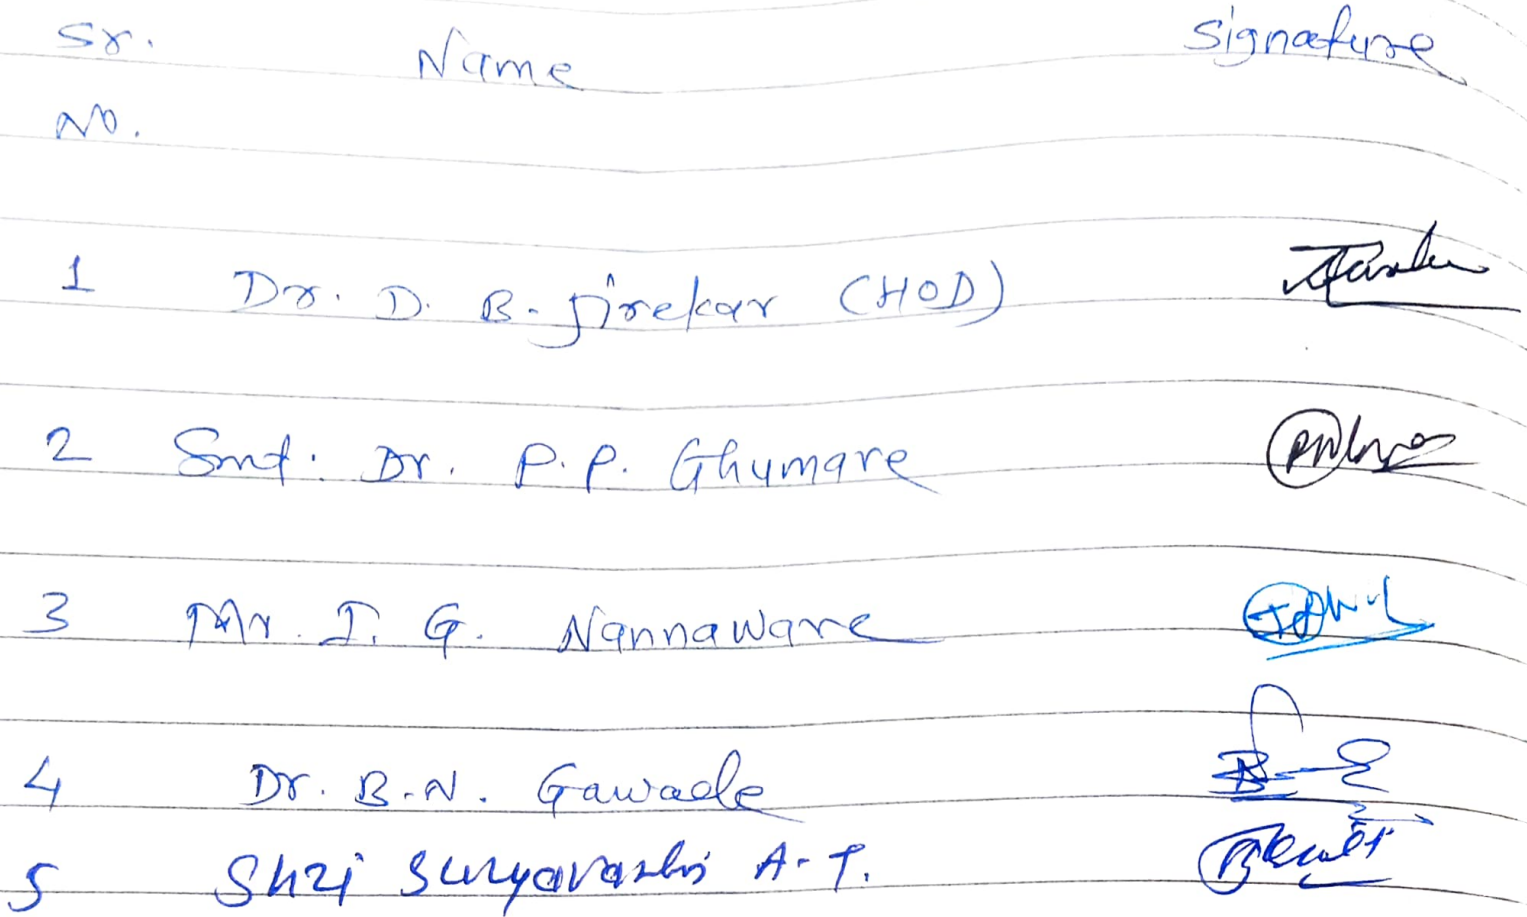 Sr. Name Signature
No.
1 Dr. D. B. Jirekar (HOD)
2 Smt. Dr. P.P. Ghumare
3 Mr. I. G. Nannaware
4 Dr. B.N. Gawade
5 Shri Suryavanshi A.T.